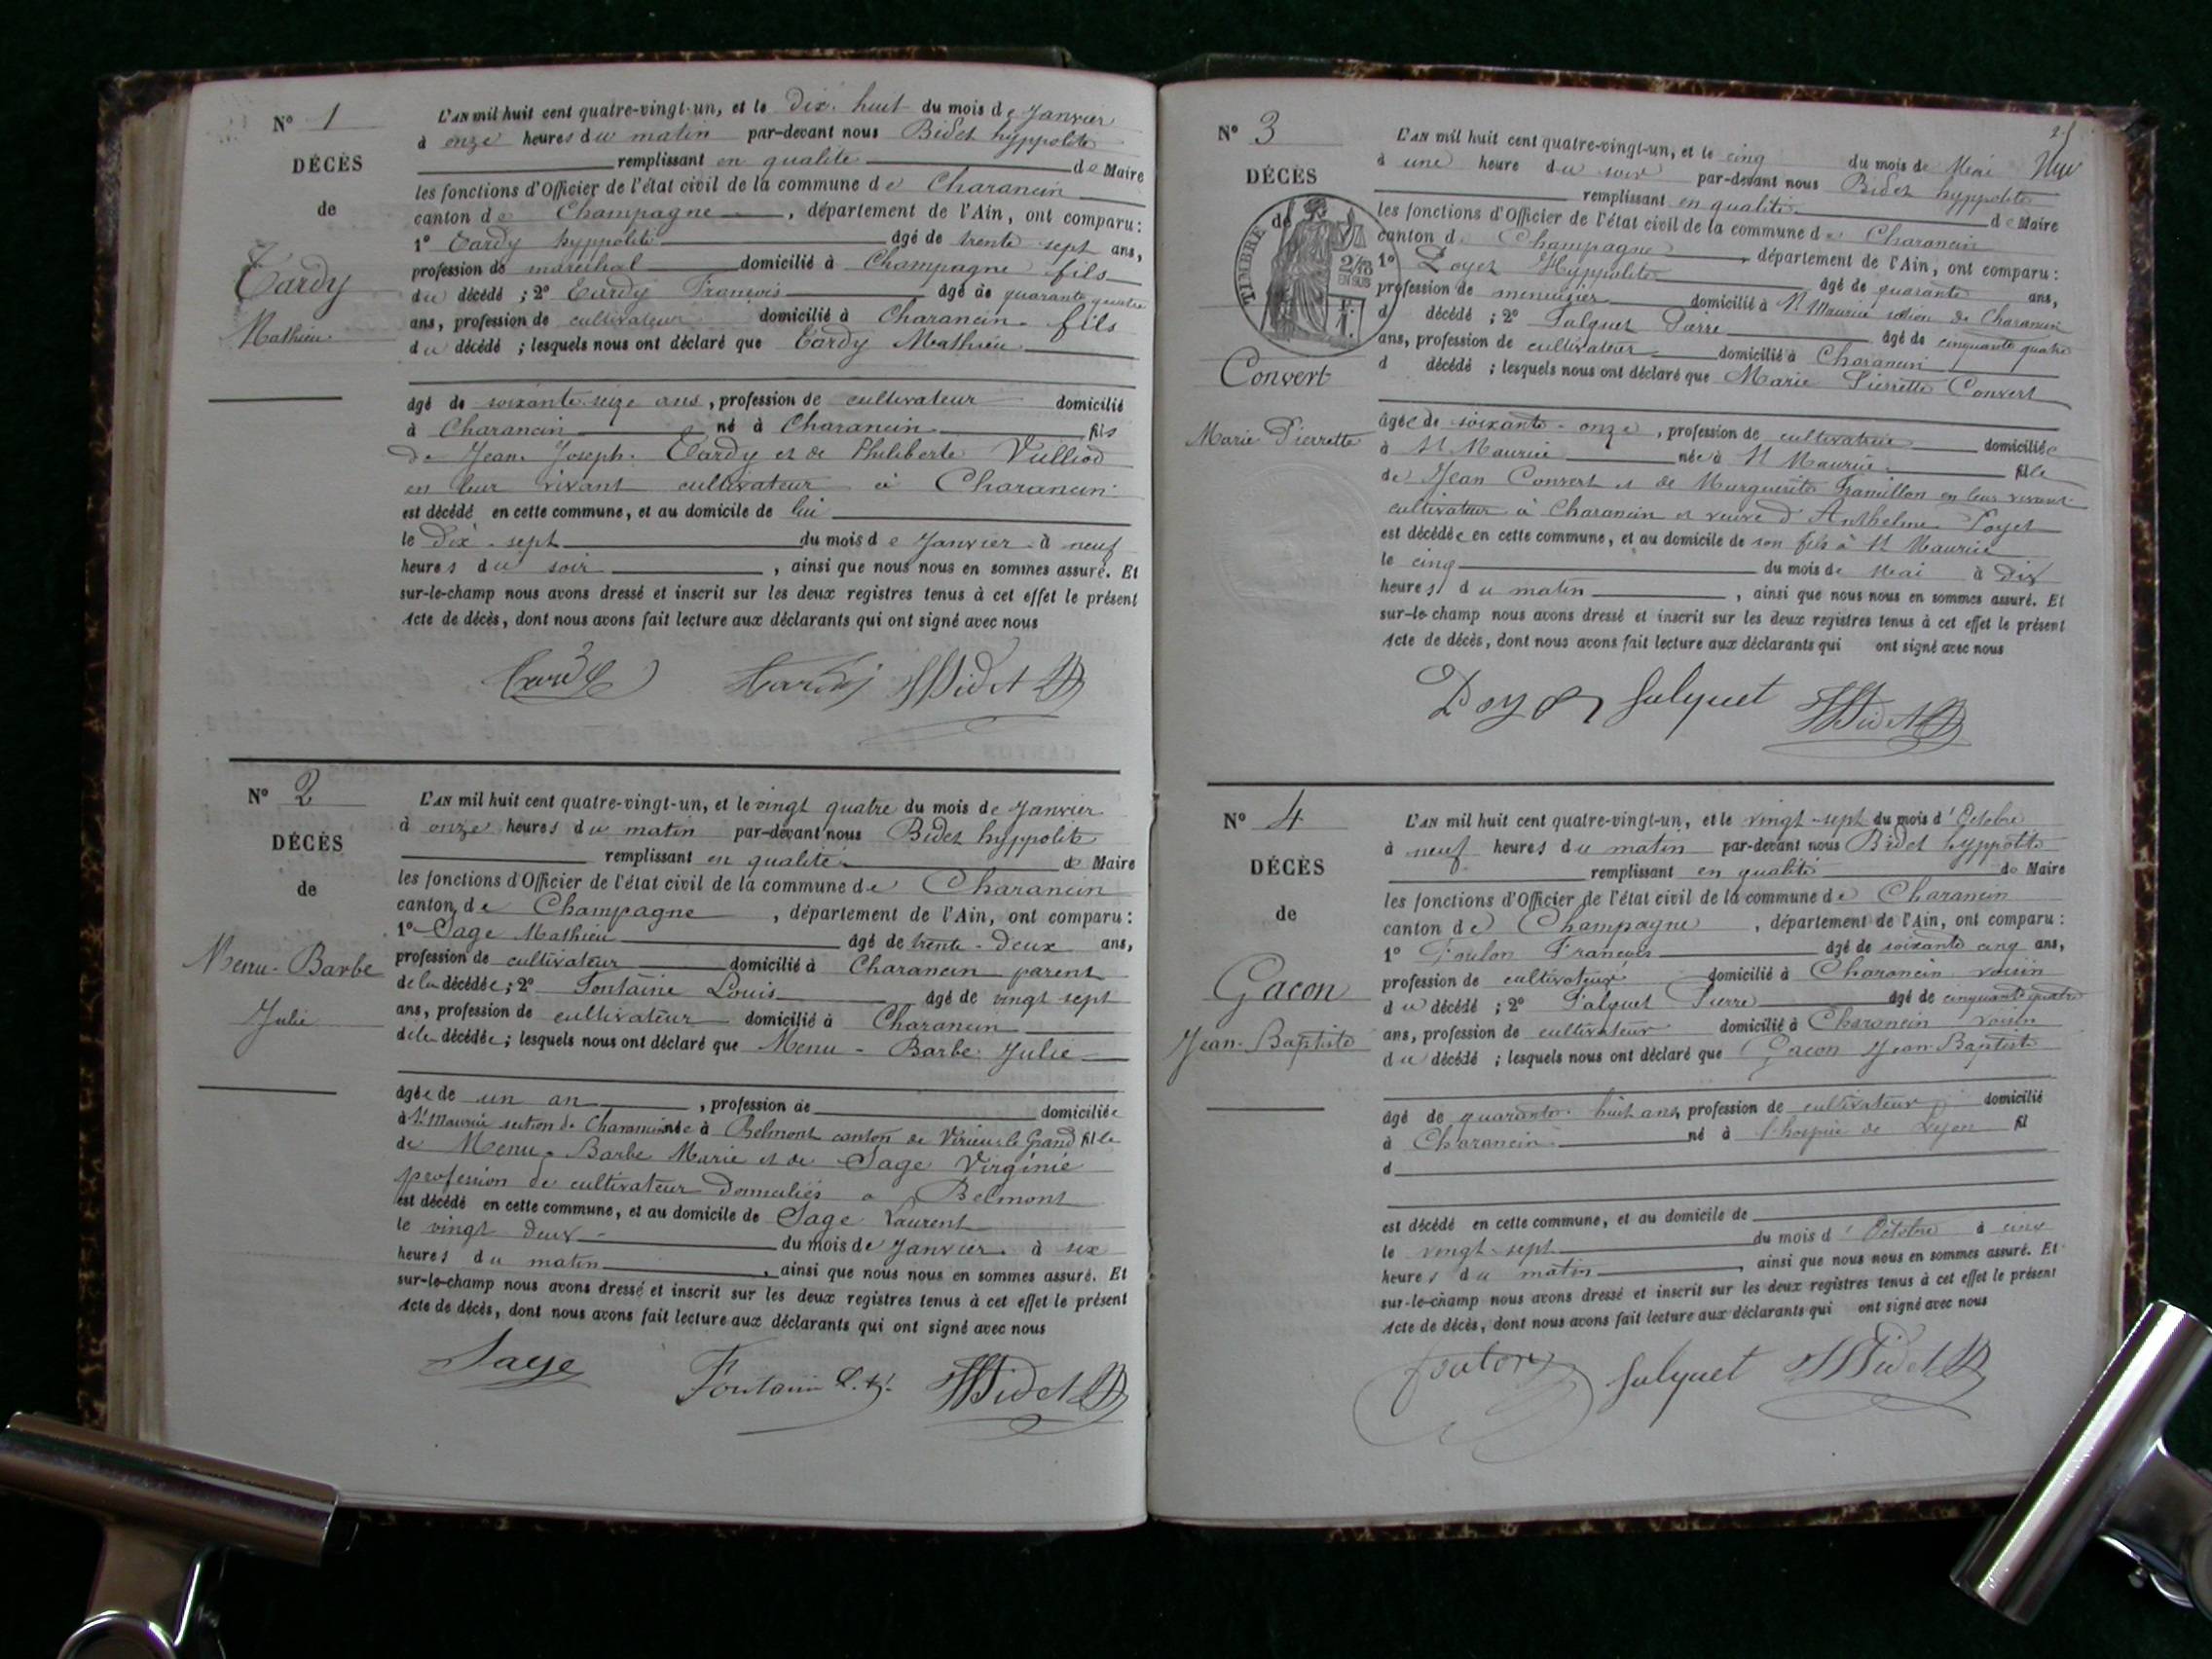 N° 1
DÉCÈS
de
Tardy
Mathieu
L'AN mil huit cent quatre-vingt-un, et le dix-huit du mois de Janvier
à onze heures du matin par-devant nous Bidet hyppolite
remplissant en qualité de Maire
les fonctions d'Officier de l'état civil de la commune de Charancin
canton de Champagne, département de l'Ain, ont comparu:
1° Tardy hyppolite âgé de trente sept ans,
profession de maréchal domicilié à Champagne fils
du décédé ; 2° Tardy François âgé de quarante quatre
ans, profession de cultivateur domicilié à Charancin fils
du décédé ; lesquels nous ont déclaré que Tardy Mathieu
âgé de soixante-seize ans, profession de cultivateur domicilié
à Charancin né à Charancin fils
de Jean Joseph Tardy et de Philiberte Vulliod
en leur vivant cultivateur à Charancin
est décédé en cette commune, et au domicile de lui
le dix-sept du mois de Janvier à neuf
heures du soir, ainsi que nous nous en sommes assuré. Et
sur-le-champ nous avons dressé et inscrit sur les deux registres tenus à cet effet le présent
Acte de décès, dont nous avons fait lecture aux déclarants qui ont signé avec nous
Tardy Tardy HBidet
N° 2
DÉCÈS
de
Menu-Barbe
Julie
L'AN mil huit cent quatre-vingt-un, et le vingt quatre du mois de Janvier
à onze heures du matin par-devant nous Bidet hyppolite
remplissant en qualité de Maire
les fonctions d'Officier de l'état civil de la commune de Charancin
canton de Champagne, département de l'Ain, ont comparu :
1° Sage Mathieu âgé de trente-deux ans,
profession de cultivateur domicilié à Charancin parent
de la décédée ; 2° Fontaine Louis âgé de vingt sept
ans, profession de cultivateur domicilié à Charancin
de la décédée ; lesquels nous ont déclaré que Menu-Barbe Julie
âgée de un an, profession de domiciliée
à St Maurice section de Charancin née à Belmont canton de Virieu le Grand fille
de Menu-Barbe Marie et de Sage Virginie
profession de cultivateur domiciliés à Belmont
est décédé en cette commune, et au domicile de Sage Laurent
le vingt deux du mois de Janvier à six
heures du matin, ainsi que nous nous en sommes assuré. Et
sur-le-champ nous avons dressé et inscrit sur les deux registres tenus à cet effet le présent
Acte de décès, dont nous avons fait lecture aux déclarants qui ont signé avec nous
Sage Fontaine HBidet
N° 3
DÉCÈS
de
TIMBRE
2/10
EN SUS
Convert
Marie Pierrette
L'AN mil huit cent quatre-vingt-un, et le cinq du mois de Mai
à une heure du soir par-devant nous Bidet hyppolite
remplissant en qualité de Maire
les fonctions d'Officier de l'état civil de la commune de Charancin
canton de Champagne, département de l'Ain, ont comparu :
1° Poyet Hyppolite âgé de quarante ans,
profession de menuisier domicilié à St Maurice section de Charancin
d décédé ; 2° Falquet Pierre âgé de cinquante quatre
ans, profession de cultivateur domicilié à Charancin
d décédé ; lesquels nous ont déclaré que Marie Pierrette Convert
âgée de soixante-onze, profession de cultivatrice domiciliée
à St Maurice née à St Maurice fille
de Jean Convert et de Marguerite en leur vivant
cultivateur à Charancin et veuve d'Anthelme Poyet
est décédée en cette commune, et au domicile de son fils à St Maurice
le cinq du mois de Mai à dix
heures du matin, ainsi que nous nous en sommes assuré. Et
sur-le-champ nous avons dressé et inscrit sur les deux registres tenus à cet effet le présent
Acte de décès, dont nous avons fait lecture aux déclarants qui ont signé avec nous
Poyet falquet HBidet
N° 4
DÉCÈS
de
Gacon
Jean-Baptiste
L'AN mil huit cent quatre-vingt-un, et le vingt-sept du mois d'Octobre
à neuf heures du matin par-devant nous Bidet hyppolite
remplissant en qualité de Maire
les fonctions d'Officier de l'état civil de la commune de Charancin
canton de Champagne, département de l'Ain, ont comparu :
1° François âgé de soixante cinq ans,
profession de cultivateur domicilié à Charancin voisin
du décédé ; 2° Falquet Pierre âgé de cinquante quatre
ans, profession de cultivateur domicilié à Charancin voisin
du décédé ; lesquels nous ont déclaré que Gacon Jean-Baptiste
âgé de quarante-huit ans, profession de cultivateur domicilié
à Charancin né à l'hospice de Lyon fil
d
est décédé en cette commune, et au domicile de
le vingt-sept du mois d'Octobre à cinq
heures du matin, ainsi que nous nous en sommes assuré. Et
sur-le-champ nous avons dressé et inscrit sur les deux registres tenus à cet effet le présent
Acte de décès, dont nous avons fait lecture aux déclarants qui ont signé avec nous
falquet HBidet